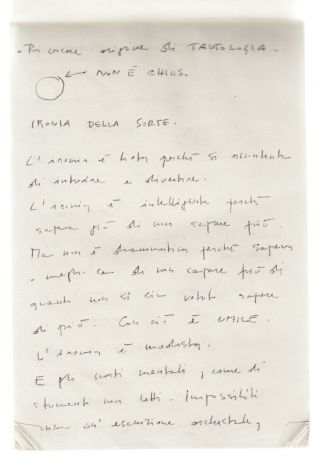 . Ricercare origine di TAUTOLOGIA.
NON È CHIOS.
IRONIA DELLA SORTE.
L'ironia è perché si accontenta
di intuire e divertire.
L'ironia è intelligente perché
sapeva già di non sapere più.
Ma non è drammatica perché sapeva
di non sapere più di
quanto non si sia voluto sapere
di più. Con ciò è UMILE.
L'ironia è modesta.
E gli mentali, come di
strumenti non letti. Impossibili
un' esecuzione orchestrale,